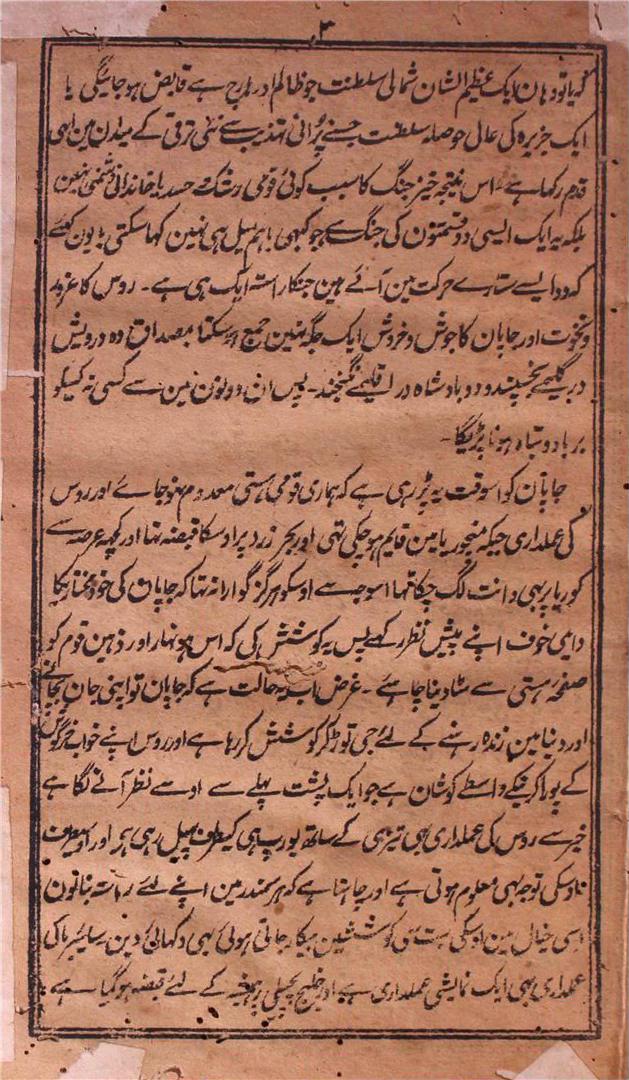 ۳
گویا تو وہان ایک عظیم الشان شمالی سلطنت جو ظالم اور جارح ہے قابض ہو جائیگی یا
ایک جزیرہ کی عالی حوصلہ سلطنت جسنے پُرانی تہذیب سے نئی ترقی کے میدان مین ابھی
قدم رکھا ہے۔ اس نتیجہ خیز جنگ کا سبب کوئی قومی رشک حسد یا خاندانی دشمنی نہین
بلکہ یہ ایک ایسی دو قسمتون کی جنگ ہے جو کبھی باہم میل ہی نہین کہا سکتی یا یون کہئے
کہ دو ایسے ستارے حرکت مین آئے ہین جنکا راستہ ایک ہی ہے۔ روس کا غرور
و نخوت اور جاپان کا جوش و خروش ایک جگہ نہین جمع ہو سکتا بمصداق دہ درویش
در گلیمے بخسپند و دو بادشاہ در اقلیمے نگنجند۔ پس ان دونون مین سے کسی نہ کسیکو
برباد و تباہ ہونا پڑیگا۔
جاپان کو اسوقت یہ پڑ رہی ہے کہ ہماری قومی ہستی معدوم نہو جائے اور روس
کی عملداری جبکہ منچوریا مین قایم ہو چکی تھی اور بحر زرد پر اوسکا قبضہ تہا اور کچھ عرصہ سے
کوریا پر بھی دانت لگ چکا تہا اسوجہ سے اوسکو ہرگز گوارا نہ تہا کہ جاپان کی خود مختاری کا
دایمی خوف اپنے پیش نظر رکھے پس یہ کوشش کی کہ اس ہونہار اور ذہین قوم کو
صفحہ ہستی سے مٹا دینا چاہئے۔ غرض اب یہ حالت ہے کہ جاپان تو اپنی جان بچانے
اور دنیا مین زندہ رہنے کے لئے جی توڑ کر کوشش کر رہا ہے اور روس اپنے خواب خرگوش
کے پورا کرنیکے واسطے کوشان ہے جو ایک پشت پہلے سے اوسے نظر آنے لگا ہے
خیر سے روس کی عملداری بھی تیزی کے ساتھ یورپ ہی کیطرف پھیل رہی ہے اور اوسیطرف
اوسکی توجہ بھی معلوم ہوتی ہے اور چاہتا ہے کہ ہر سمندر مین اپنے لئے راستہ بنا لون
اسی خیال مین اوسکی بہت سی کوششین بیکار جاتی ہوئی بھی دکھائی دین سائبیریا کی
عملداری بھی ایک نمایشی عملداری ہے اور خلیج پر ہمیشہ کے لئے قبضہ ہو گیا ہے